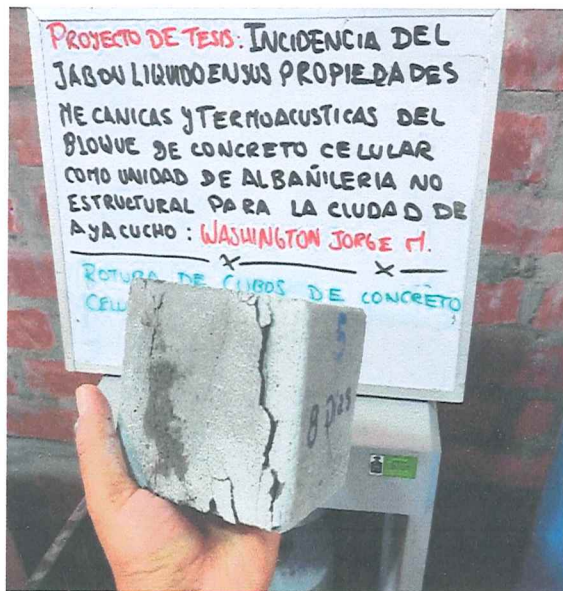 PROYECTO DE TESIS: INCIDENCIA DEL
JABON LIQUIDO EN SUS PROPIEDADES
MECANICAS Y TERMOACUSTICAS DEL
BLOQUE DE CONCRETO CELULAR
COMO UNIDAD DE ALBAÑILERIA NO
ESTRUCTURAL PARA LA CIUDAD DE
AYACUCHO: WASHINGTON JORGE M.
ROTURA DE CUBOS DE CONCRETO